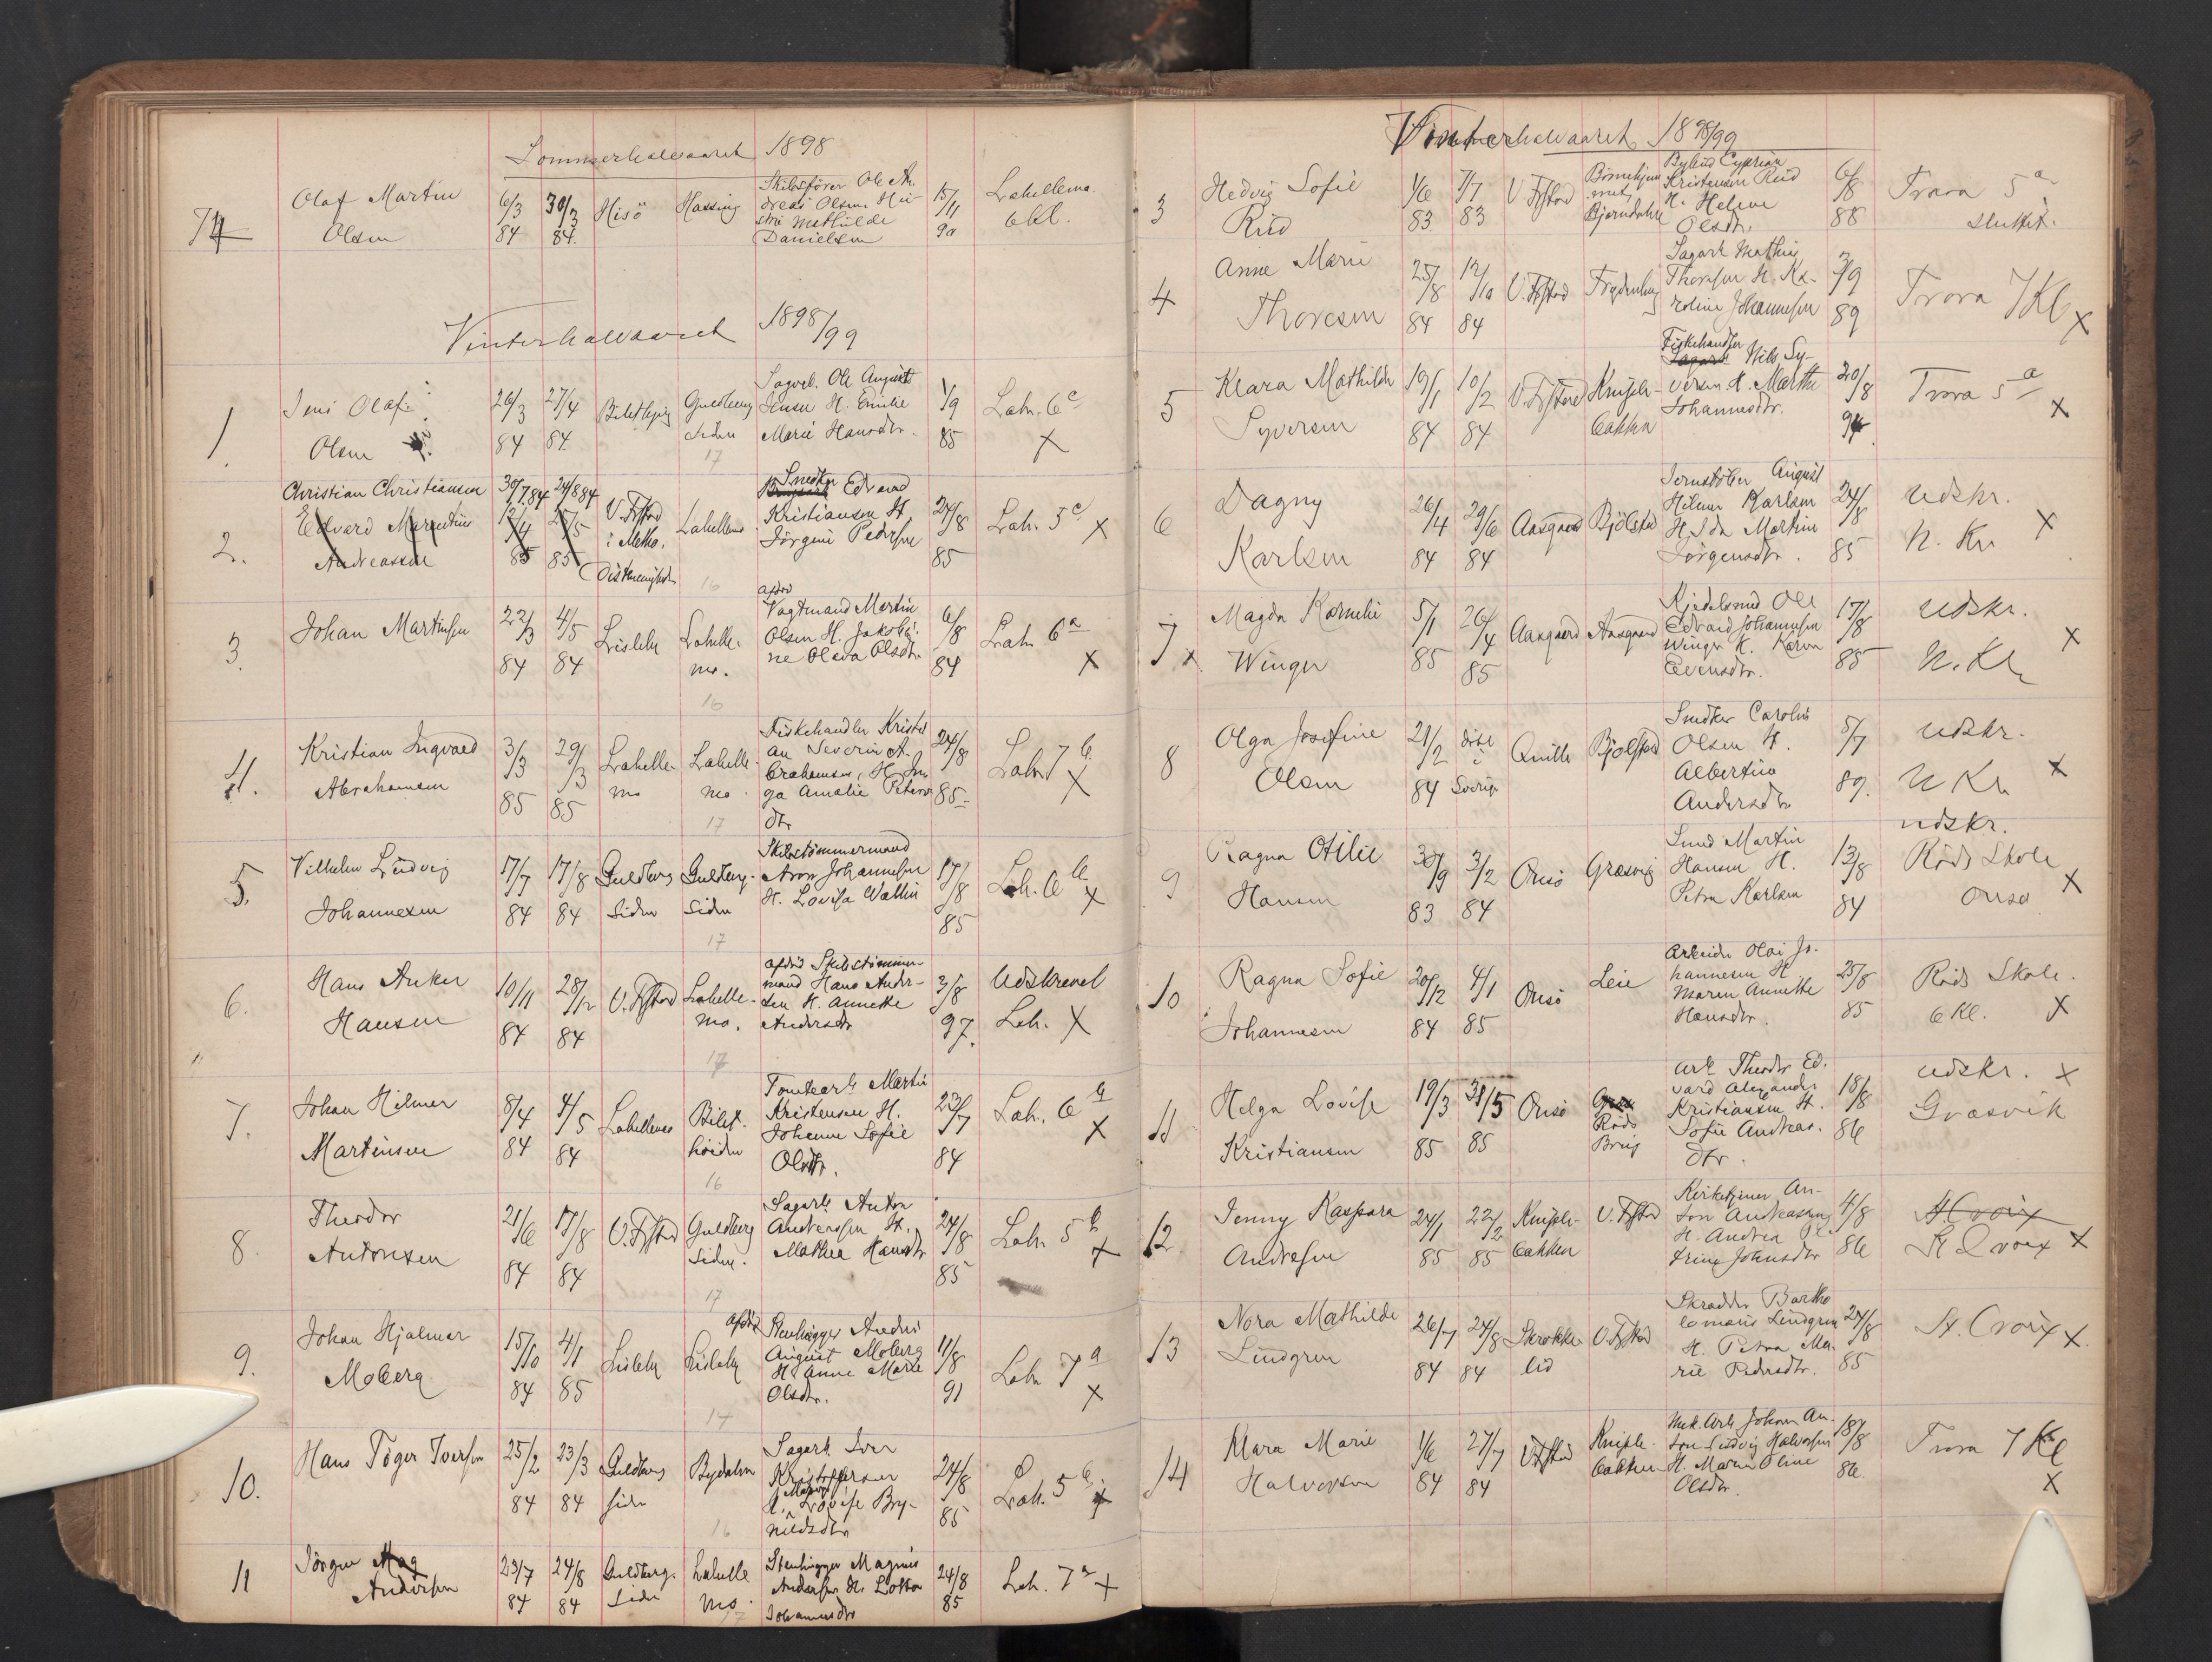 Sommerhalvaaret 1898
74
Olaf Martin
Olsen
6/3 84
30/3 84.
Hisö
Hassing
Skibsfører Ole An-
dreas Olsen. Hu-
stru Mathilde
Danielsen
15/11 90
Lahellemo.
6 kl.
Vinterhalvaaret 1898/99
1.
Jens Olaf
Olsen
26/3 84
27/4 84.
Guldberg
siden
17
Ole August
Jensen H. Emilie
Marie Hansdtr.
1/9 85
Lah. 6c
X
2.
Christian Christiansen
Edvard Martinius
Andreassen
30/7 84 24/8 84
12/4 85
25/5 85
V. Fr.stad
i Meth.
Lahellemo
16
Snedker Edvard
Kristiansen H.
Jörgine Pedersen
24/8 85
Lah. 5c X
3.
Johan Martinsen
22/3 84
4/5 84
Lisleby
Lahelle-
mo.
16
afdød
Vagtmand Martin
Olsen H. Jakobi-
ne Oleva Olsdtr.
6/8 84
Lah. 6a
X
4.
Kristian Ingvard
Abrahamsen
3/3 85
29/3 85
Lahelle
mo
Lahelle
mo.
17
Fiskehandler Kristi
an Severin A-
brahamsen, H. In
ga Amalie Peters
dtr
24/8 85
Lah. 7b
X
5.
Vilhelm Ludvig
Johannesen
17/7 84
17/8 84
Guldberg
siden
Guldberg-
siden
17
Skibstømmermand
Aron Johannesen
H. Lovisa Wallin
17/8 85
Lah. 6b
X
6.
Hans Anker
Hansen
10/11 84
28/12 84
V. Fr.stad
Lahelle-
mo.
17
afdød Skibstømmer-
mand Hans Ander-
sen H. Annette
Andersdtr
3/8 97.
Udskrevet
Lah. X
7.
Johan Hilmer
Martinsen
8/4 84
4/5 84
Lahellemo
Bilet-
höiden
16
Tomtearb. Martin
Kristensen H.
Johanne Sofie
Olsdtr.
23/7 84
Lah. 6b
X
8.
Theodor
Antonsen
21/6 84
17/8 84
V. Fr.stad
Guldberg
siden.
17
Sagarb. Anton
Andersen H.
Mathea Hansdtr
24/8 85
Lah. 5b
X
9.
Johan Hjalmar
Moberg
15/10 84
4/1 85
Lisleby
Lisleby
14
afdød Stenhugger Andris
August Moberg
H. Anne Marie
Olsdtr.
11/8 91
Lah. 7a
X
10.
Hans Töger Iversen
25/2 84
23/3 84
Guldberg
siden
Bydalen
16
Sagarb. Iver
Kristoffersen
H. Lovise Bry-
nildsdtr
24/8 85
Lah. 5b.
X
11
Jörgen Mag
Andersen
23/7 84
24/8 84
Guldberg-
siden
Lahelle
mo.
17
Stenhugger Magnus
Andersen H. Lotta
Johannesdtr
24/8 85
Lah. 7a X
Vinterhalvaaret 1898/99
3
Hedvig Sofie
Rud
1/6 83.
7/7 83
V Fr.stad
Børnehjem
met,
Bjørndalen
Bybud Cyprian
Kristensen Rud
H. Helene
Olsdtr.
6/8 88
Trara 5a
sluttet.
4
Anne Marie
Thoresen
25/8 84
12/10 84
V. Fr.stad
Frydenberg
Sagarb. Mathias
Thoresen H. Ka-
roline Johannesen
7/9 89
Trara 7 Kl
X
5
Klara Mathilde
Syversen
19/1 84
10/2 84
V. Fr.stad
Kniple-
bakken
Fiskehandler
Sagarb. Nils Sy-
versen. H. Marthe
Johannesdtr.
20/8 94
Trara 5a
X
6
Dagny
Karlsen
26/4 84
29/6 84
Aasgaard
Bjölstad
Jernstöber August
Hilmer Karlsen
H. Ida Martine
Jörgensdtr.
24/8 85
Udskr.
N. Kr. X
7 x
Magda Kornelie
Winger
5/1 85
26/4 85
Aasgaard
Aasgaard
Kjedelsmed Ole
Edvard Johannesen
Winger H. Karen
Evensdtr.
17/8 85
Udskr.
N. Kr.
X
8
Olga Josefine
Olsen
21/2 84
döbt
i
Sverige
Qville
Bjölstad
Snedker Carolus
Olsen H.
Albertine
Andersdtr
5/7 89.
Udskr.
N Kr. X
9
Ragna Otilie
Hansen
30/9 83
3/2 84
Onsö
Græsvig
Smed Martin
Hansen H.
Petra Karlsen
13/8 84
udskr.
Röds Skole
Onsö
X
10
Ragna Sofie
Johannesen
20/12 84
4/1 85
Onsö
Leie
Arbeider Olai Jo-
hannesen H
Maren Annette
Hansdtr.
25/8 85
Röds Skole.
6 Kl. X
11
Helga Lovise
Kristiansen
19/3 85
31/5 85
Onsö
Röds
Brug
Arb. Theodor Ed-
vard Alexander
Kristiansen H.
Sofie Andreas-
dtr.
18/8 86
udskr. X
Græsvik
12
Jenny Kaspara
Andresen
24/1 85
22/2 85
Kniple-
bakken
V. Fr.stad
Kirketjener An-
ton Andreassen
H. Andrea Pe
trine Johnsdtr
4/8 86
St Croix
St Croix X
13
Nora Mathilde
Lindgren
26/7 84
24/8 84
Skrokke-
lid
V. Fr.stad
Skrædder Bartho
lomæus Lindgren
H. Petra Ma-
rie Pedersdtr.
24/8 85
St. Croix X.
14
Klara Marie
Halvorsen
1/6 84
27/7 84
V Fr.stad
Kniple-
bakken
Mek. Arb. Johan An-
ton Ludvig Halvorsen
H. Maren Oline
Olsdtr.
18/8 86.
Trara 7 Kl
X